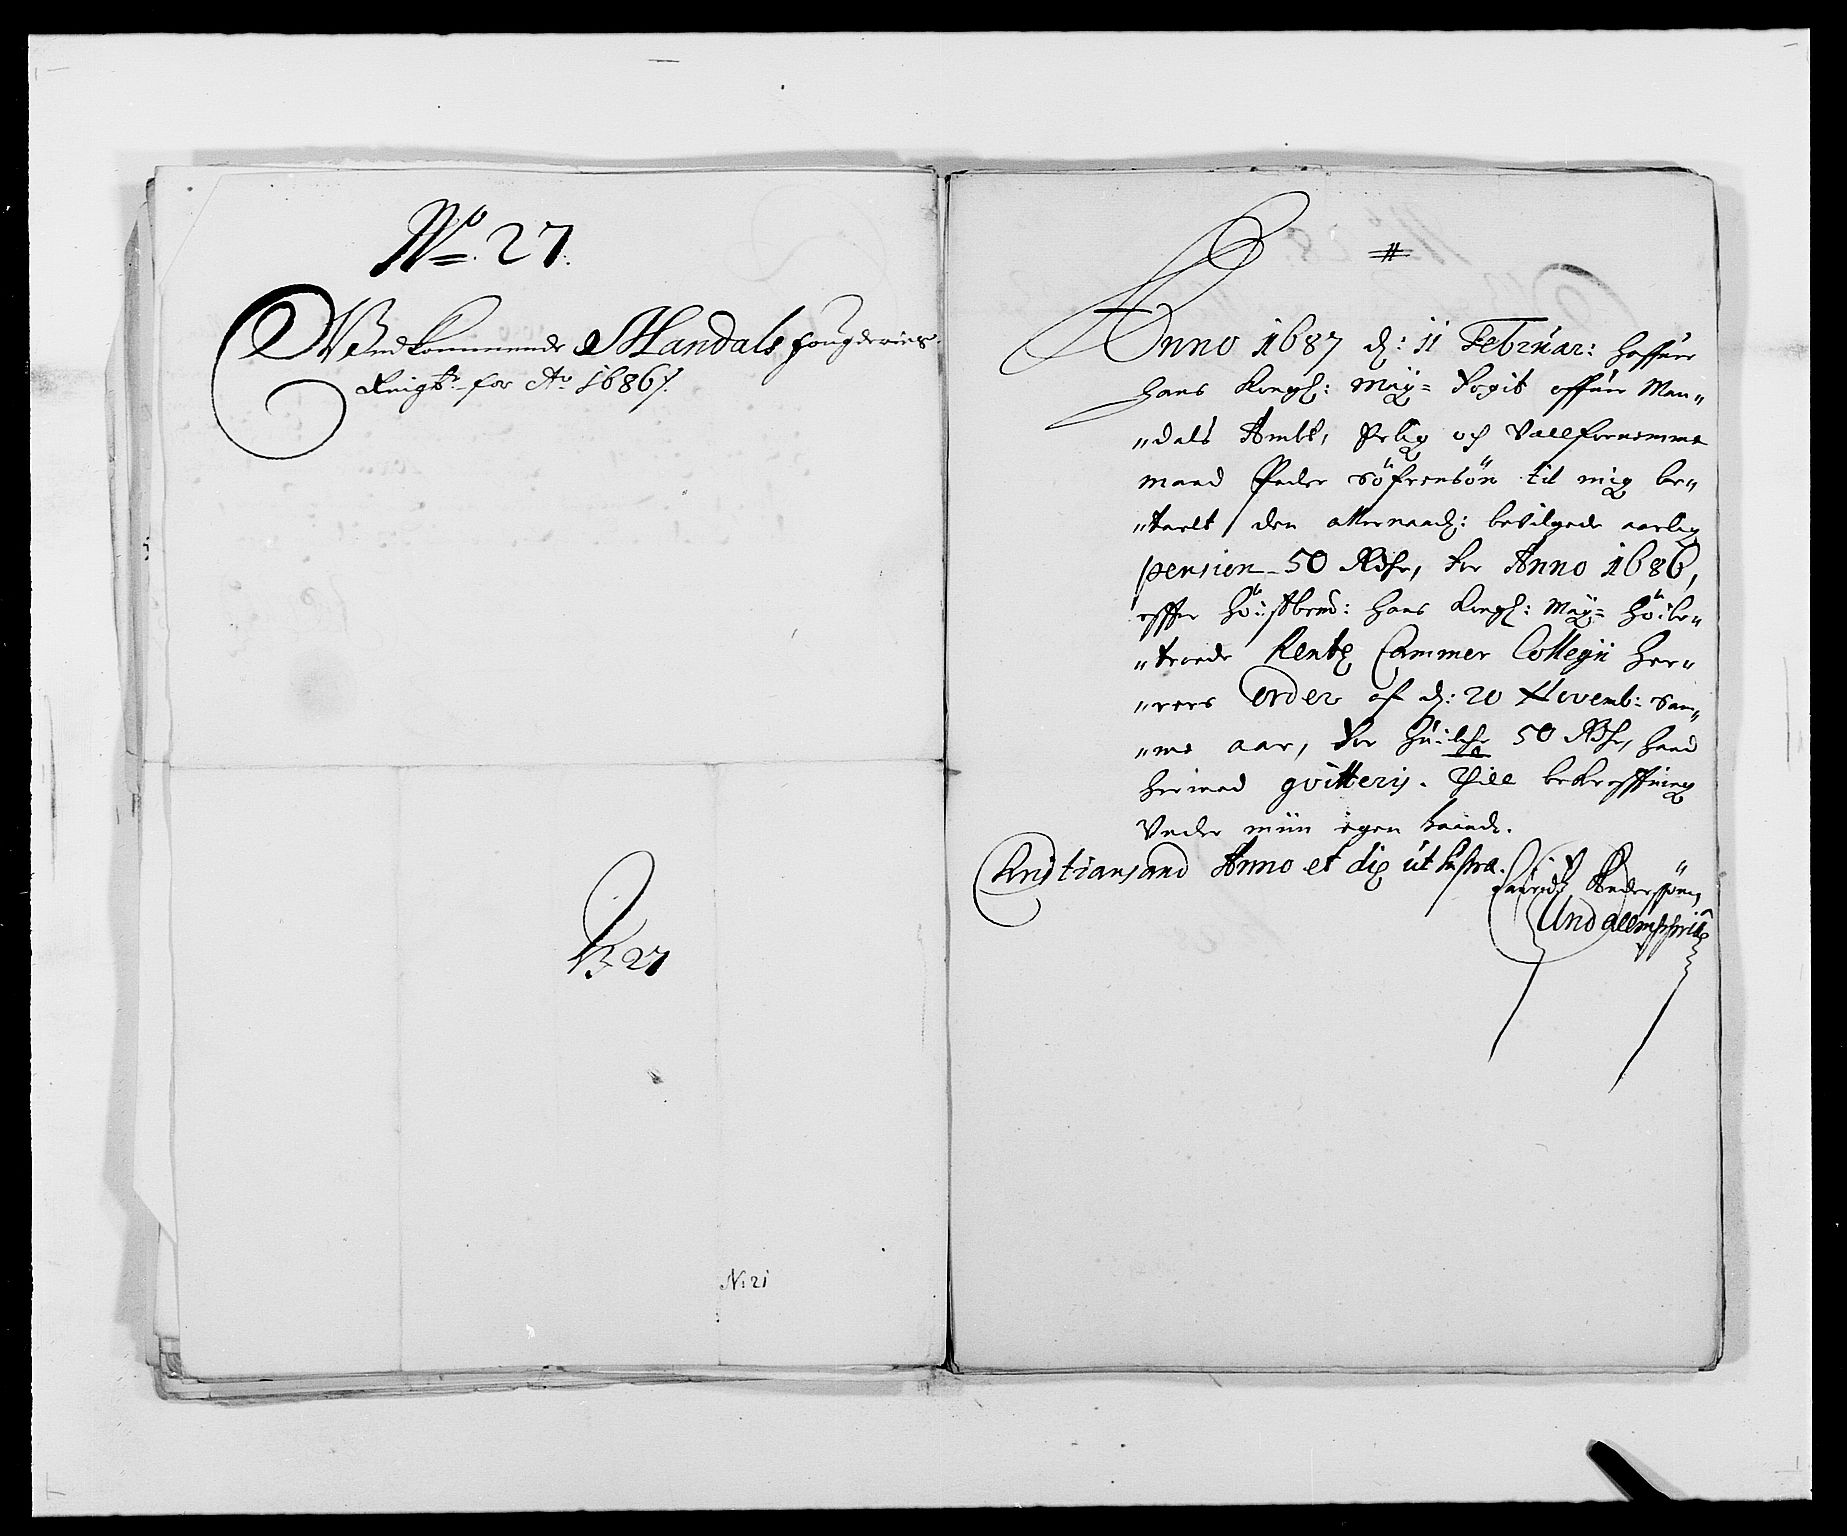 No. 27.
Vedkommende Mandals fougderies
Reigsk: for Ao 1686/.
N 27
N: 21
#
Anno 1687 d: 11 Februar: haffuer
hans Kongl: May: Fogit offuer Man„
„dals Ambt, Erlig och Velfornemme
mand Peder Söfrensön til mig be„
„talt den allernaad: bevilgede aarlig
pension 50 Rdr, for Anno 1686,
effter höistbemd: Hans Kongl: May: höibe„
„troede Rente Cammer Collegii Her„
„rers order af d: 20 Novemb: sam„
„me aar, for huilche 50 Rdr, hand
hermed qvitteris. Till bekrefftning
Under min egen haand.
Christiansand Anno et die ut supra.
Laurids Anderssön